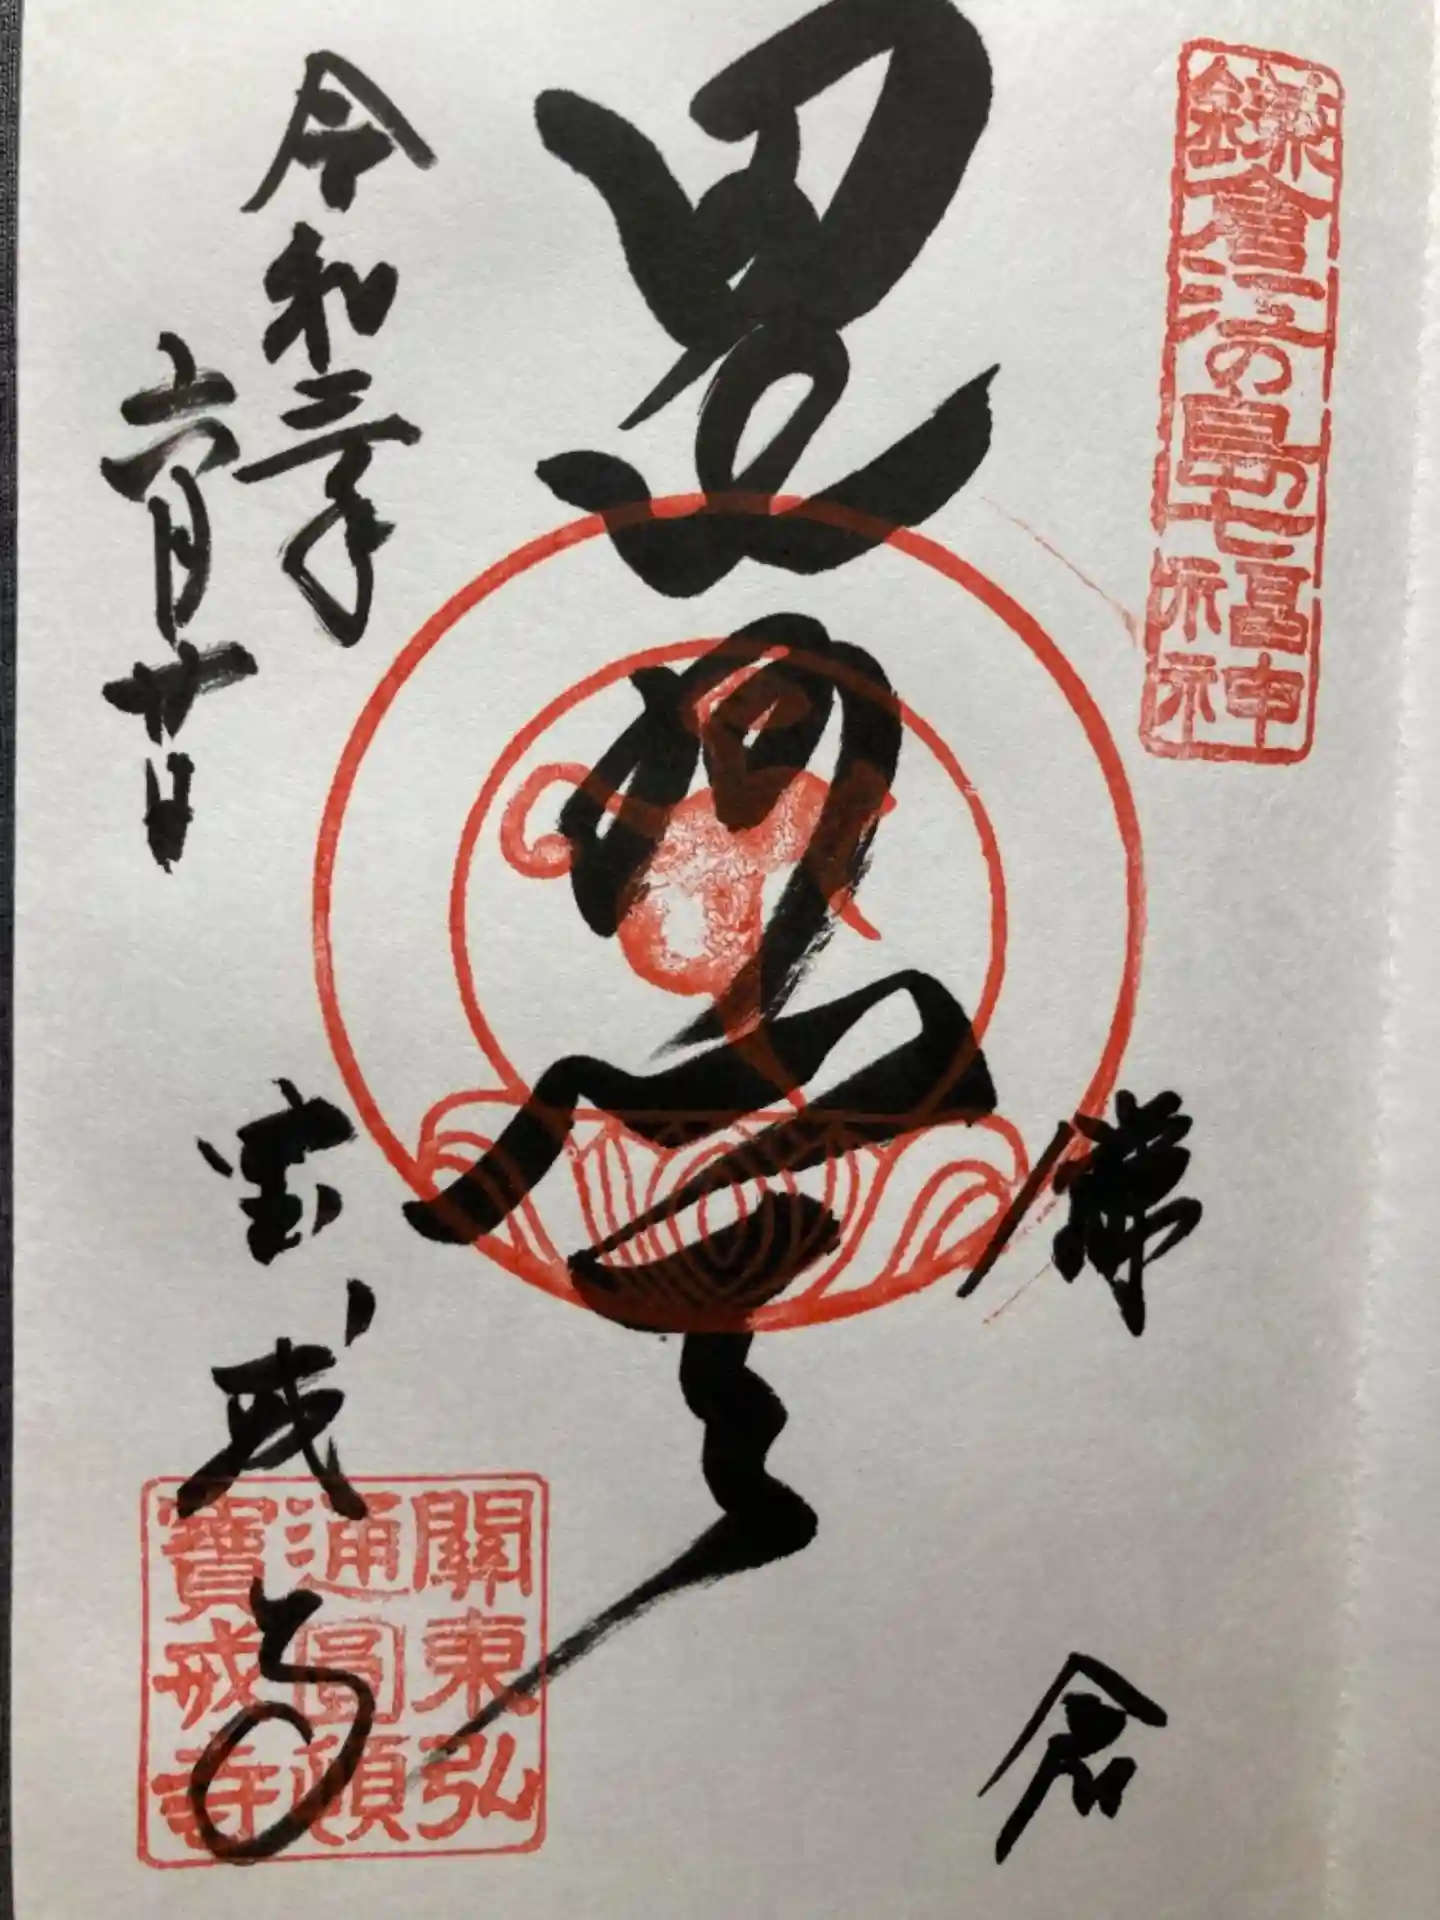 鎌倉江の島七福神
鎌倉
毘沙門天
令和三年
六月廿日
宝戒寺
關東弘
通圓頓
寶戒寺